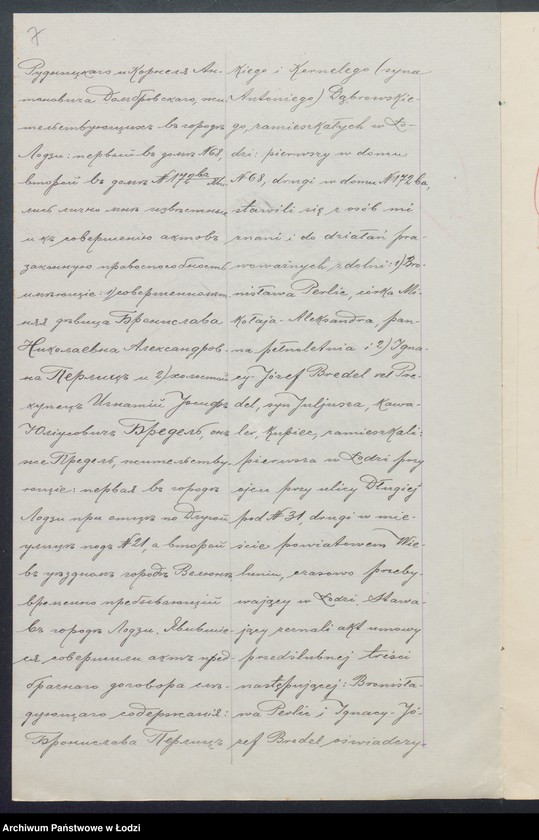 7
Рудницкаго и Корнеля Ан-
тоновича Домбровскаго, жи-
тельствующихъ въ городѣ
Лодзи: первый въ домѣ №68,
второй въ домѣ №172ba
лись лично мнѣ извѣстные
и къ совершенію актовъ
законную правоспособность
имѣющіе: 1) совершеннолѣт
няя дѣвица Бронислава
Николаевна Александров-
на Перлицъ и 2) холостой
купецъ Игнатій Іосифъ
Юліусовичъ Бредель, онъ
же Предель, жительству-
ющіе: первая въ городѣ
Лодзи при отцѣ по Другой
улицѣ подъ №21, а второй
въ уѣздномъ городѣ Велюнѣ
временно пребывающій
въ городѣ Лодзи. Явившіе-
ся совершили актъ пред-
брачнаго договора слѣ-
дующаго содержанія:
Бронислава Перлицъ
kiego i Kornelego (syna
Antoniego) Dąbrowskie-
go, zamieszkałych w Ło-
dzi: pierwszy w domu
N68, drugi w domu N172ba,
stawili się z osób mi
znani i do działań pra-
wnoważnych zdolni: 1) Bro-
nisława Perlic, córka Mi-
kołaja-Aleksandra, pan-
na pełnoletnia i 2) Igna-
cy-Józef Bredel vel Pre-
del, syn Juljusza, kawa-
ler, kupiec, zamieszkali:
pierwsza w Łodzi przy
ojcu przy ulicy Długiej
pod N31, drugi w mie-
ście powiatowem Wie-
luniu, czasowo przeby-
wający w Łodzi. Stawa-
jący zeznali akt umowy
przedślubnej treści
następującej: Bronisła-
wa Perlic i Ignacy-Jó-
zef Bredel oświadczy-
Archiwum Państwowe w Łodzi